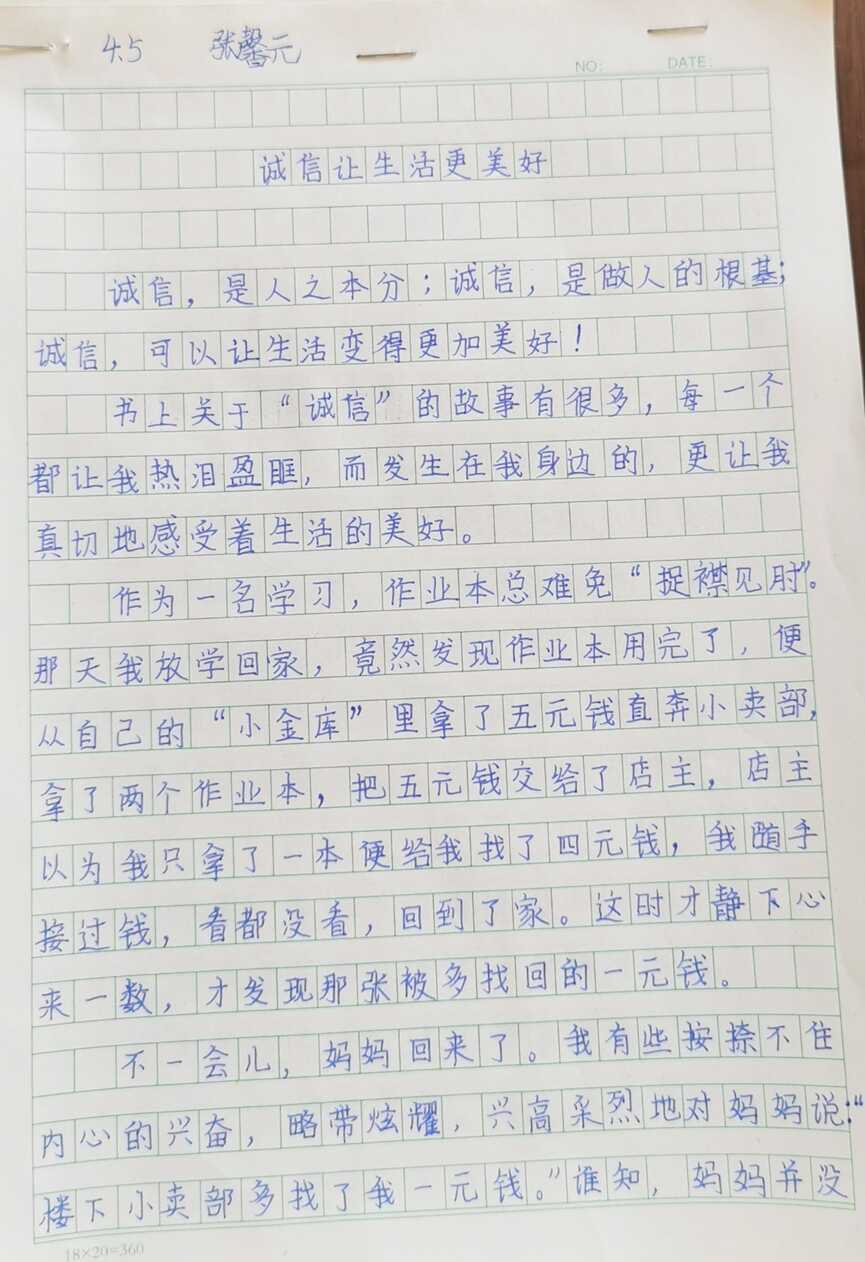 4.5 张馨元
NO: DATE:
诚信让生活更美好
诚信，是人之本分；诚信，是做人的根基；
诚信，可以让生活变得更加美好！
书上关于“诚信”的故事有很多，每一个
都让我热泪盈眶，而发生在我身边的，更让我
真切地感受着生活的美好。
作为一名学习，作业本总难免“捉襟见肘”。
那天我放学回家，竟然发现作业本用完了，便
从自己的“小金库”里拿了五元钱直奔小卖部，
拿了两个作业本，把五元钱交给了店主，店主
以为我只拿了一本便给我找了四元钱，我随手
接过钱，看都没看，回到了家。这时才静下心
来一数，才发现那张被多找回的一元钱。
不一会儿，妈妈回来了。我有些按捺不住
内心的兴奋，略带炫耀，兴高采烈地对妈妈说：“
楼下小卖部多找了我一元钱。”谁知，妈妈并没
18×20=360